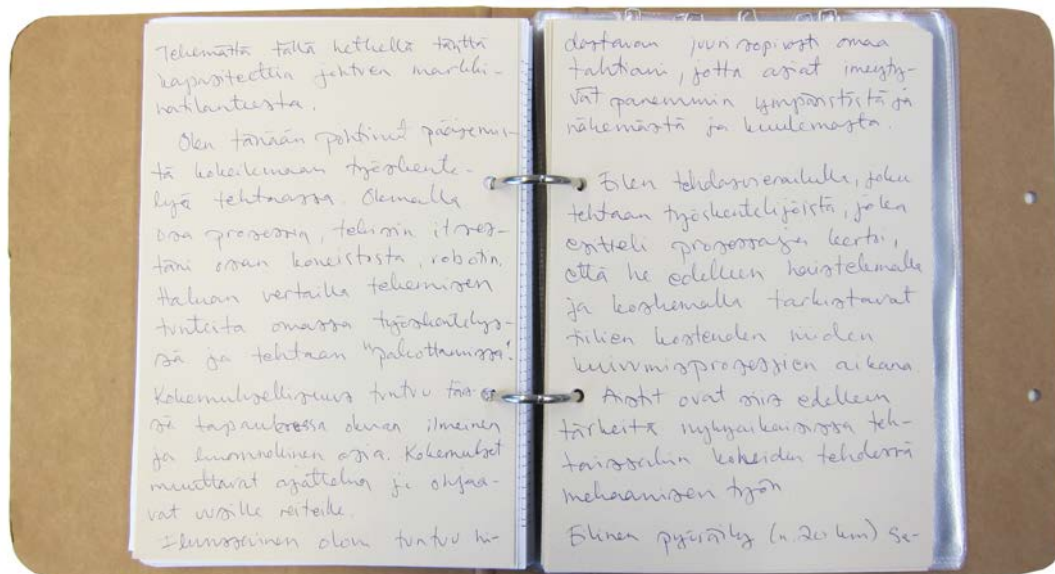 Tekemättä tällä hetkellä täyttä
kapasiteettia johtuen markki-
natilanteesta.
Olen tänään pohtinut pääsemis-
tä kokeilemaan työskente-
lyä tehtaassa. Olemalla
osa prosessia, tekisin itses-
täni osan koneistosta, robotin.
Haluan vertailla tekemisen
tunteita omassa työskentelys-
sä ja tehtaan "palvottamissa".
Kokemuksellisuus tuntuu täs-
sä tapauksessa olevan ilmeinen
ja luonnollinen asia. Kokemukset
muuttavat ajattelua ja ohjaa-
vat uusille reiteille.
Flunssainen olo tuntuu hi-
dastavan juuri sopivasti omaa
tahtiani, jotta asiat imeyty-
vät paremmin ympäristöstä ja
nähemästä ja kuulemasta.
Eilen tehdasvierailulla, joku
tehtaan työskentelijöistä, joka
esitteli prosesseja kertoi,
että he edelleen haistelemalla
ja koskemalla tarkistavat
tiilien kosteuden niiden
kuivumisprosessien aikana
Aistit ovat siis edelleen
tärkeitä nykyaikaisissa teh-
taissakin koneiden tehdessä
mekaanisen työn
Eilinen pyöräily (n. 20 km) sa-